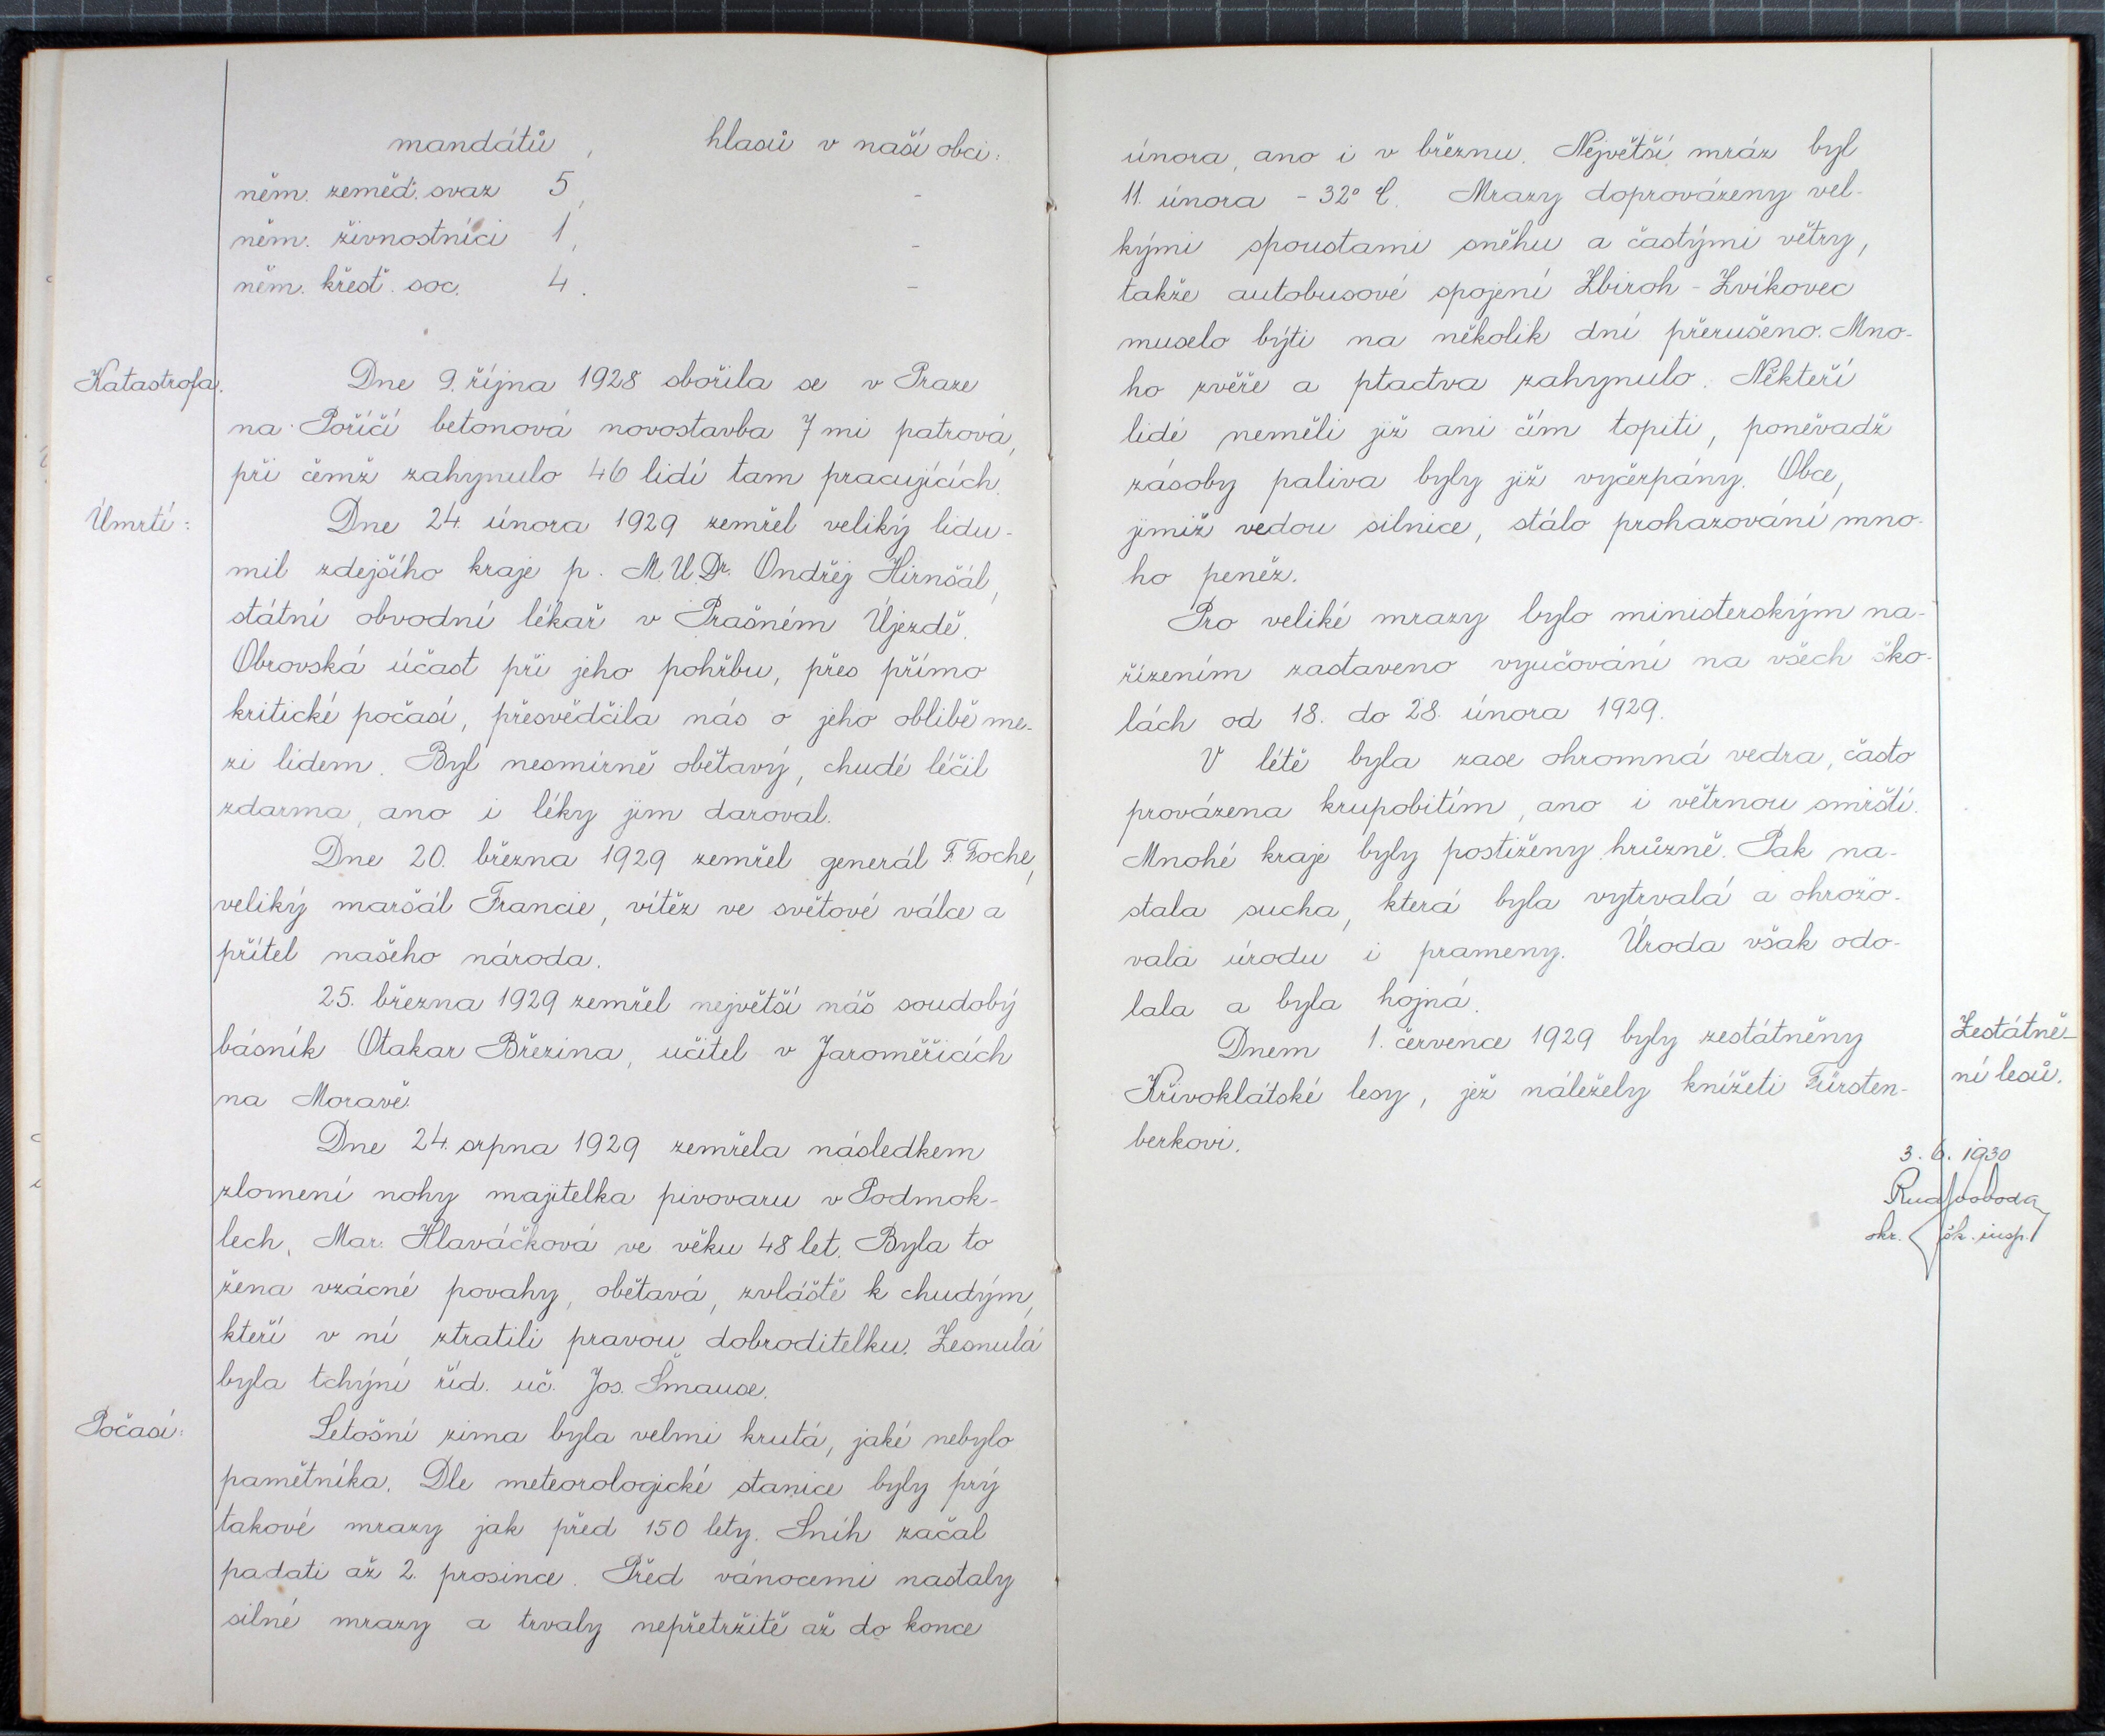 mandátů, hlasů v naší obci:
něm. zeměď. svaz 5, -
něm. živnostníci 1, -
něm. křesť. soc. 4. -
Katastrofa.
Dne 9. října 1928 sbořila se v Praze
na Poříčí betonová novostavba 7 mi patrová,
při čemž zahynulo 46 lidí tam pracujících.
Úmrtí:
Dne 24. února 1929 zemřel veliký lidu-
mil zdejšího kraje p. M.U.Dr. Ondřej Hirnšál,
státní obvodní lékař v Prašném Újezdě.
Obrovská účast při jeho pohřbu, přes přímo
kritické počasí, přesvědčila nás o jeho oblibě me-
zi lidem. Byl nesmírně obětavý, chudé léčil
zdarma, ano i léky jim daroval.
Dne 20. března 1929 zemřel generál F. Foche,
veliký maršál Francie, vítěz ve světové válce a
přítel našeho národa.
25. března 1929 zemřel největší náš soudobý
básník Otakar Březina, učitel v Jaroměřicích
na Moravě.
Dne 24. srpna 1929 zemřela následkem
zlomení nohy majitelka pivovaru v Podmok-
lech, Mar. Hlaváčková ve věku 48 let. Byla to
žena vzácné povahy, obětavá, zvláště k chudým,
kteří v ní ztratili pravou dobroditelku. Zesnulá
byla tchýní říd. uč. Jos. Šmause.
Počasí:
Letošní zima byla velmi krutá, jaké nebylo
pamětníka. Dle meteorologické stanice byly prý
takové mrazy jak před 150 lety. Sníh začal
padati až 2. prosince. Před vánocemi nastaly
silné mrazy a trvaly nepřetržitě až do konce
února, ano i v březnu. Největší mráz byl
11. února - 32° C. Mrazy doprovázeny vel-
kými spoustami sněhu a častými větry,
takže autobusové spojení Zbiroh - Zvíkovec
muselo býti na několik dní přerušeno. Mno-
ho zvěře a ptactva zahynulo. Někteří
lidé neměli již ani čím topiti, poněvadž
zásoby paliva byly již vyčerpány. Obce,
jimiž vedou silnice, stálo prohazování mno-
ho peněz.
Pro veliké mrazy bylo ministerským na-
řízením zastaveno vyučování na všech ško-
lách od 18. do 28. února 1929.
V létě byla zase ohromná vedra, často
provázena krupobitím, ano i větrnou smrští.
Mnohé kraje byly postiženy hrůzně. Pak na-
stala sucha, která byla vytrvalá a ohrožo-
vala úrodu i prameny. Úroda však odo-
lala a byla hojná.
Dnem 1. července 1929 byly zestátněny
Křivoklátské lesy, jež náležely knížeti Fürsten-
berkovi.
Zestátně-
ní lesů.
3. 6. 1930
Rud Svoboda
okr. šk. insp.